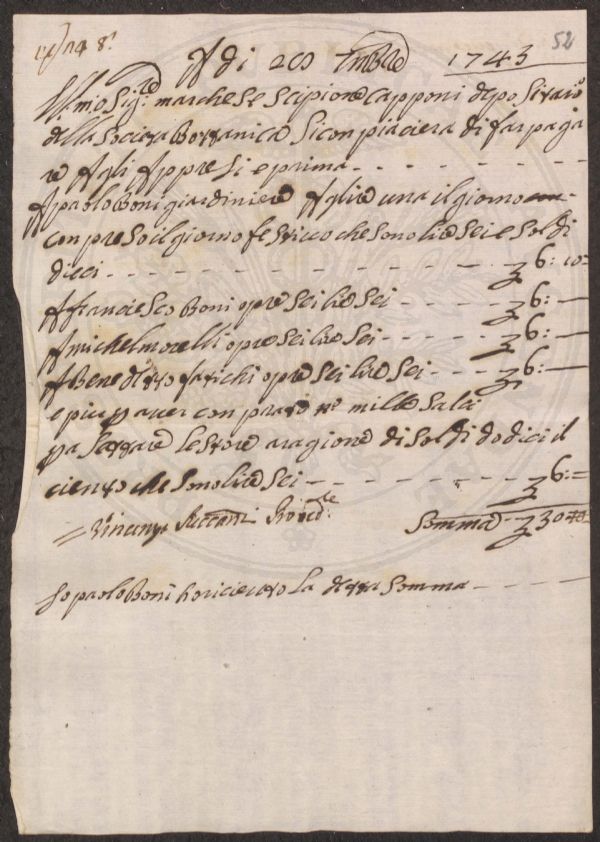 52
A di 20 1743
Ill.mo Sig.re marchese Scipione Capponi depositario
della Società Bottanica Si conpiacierà di far paga
re Agli Appresi e prima
A paolo Boni giardiniere A lire una il giorno
conpreso il giorno festivo che sono lire Sei e Soldi
dieci 6: 10
A franciesco Boni opre Sei lire Sei 6: —
A michel morelli opre Sei lire Sei 6: —
A Benedetto fatichi opre Sei lire Sei 6: —
e piu p aver conprato n.o mille Salci
pa legare le store a ragione di Soldi dodici il
ciento che sono lire Sei 6: =
Somma 30
Io paolo Boni ho ricieuto la detta Somma